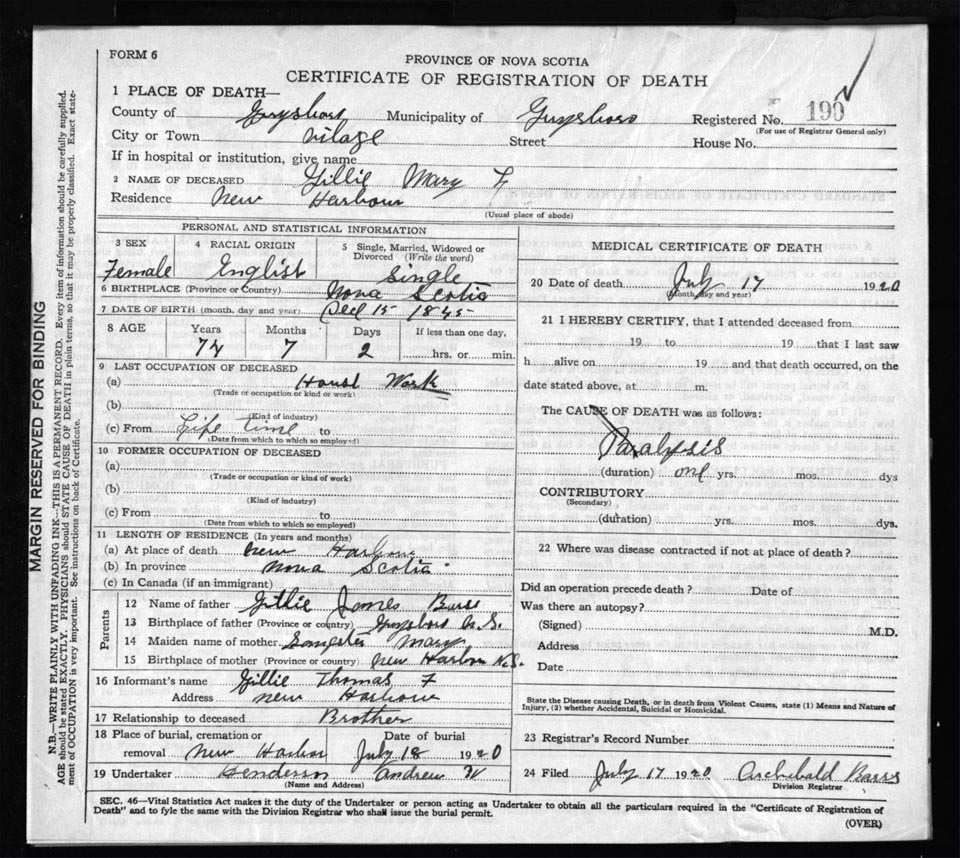 FORM 6
PROVINCE OF NOVA SCOTIA
CERTIFICATE OF REGISTRATION OF DEATH
1 PLACE OF DEATH—
County of Guysboro Municipality of Guysboro Registered No. 190
(For use of Registrar General only)
City or Town Village Street House No.
If in hospital or institution, give name
2 NAME OF DECEASED Gillie Mary F
Residence New Harbour
(Usual place of abode)
PERSONAL AND STATISTICAL INFORMATION
3 SEX 4 RACIAL ORIGIN 5 Single, Married, Widowed or Divorced (Write the word)
Female English Single
6 BIRTHPLACE (Province or Country) Nova Scotia
7 DATE OF BIRTH (month, day and year) Dec 15 1845
8 AGE Years Months Days If less than one day,
74 7 2 hrs. or min.
9 LAST OCCUPATION OF DECEASED
(a) House Work
(Trade or occupation or kind or work)
(b)
(Kind of industry)
(c) From Life time to
(Date from which to which so employed)
10 FORMER OCCUPATION OF DECEASED
(a)
(Trade or occupation or kind of work)
(b)
(Kind of industry)
(c) From to
(Date from which to which so employed)
11 LENGTH OF RESIDENCE (In years and months)
(a) At place of death New Harbour
(b) In province Nova Scotia
(c) In Canada (if an immigrant)
Parents
12 Name of father Gillie James
13 Birthplace of father (Province or country) Guysboro N.S.
14 Maiden name of mother Sangster Mary
15 Birthplace of mother (Province or country) New Harbor N.S.
16 Informant's name Gillie Thomas F
Address New Harbour
17 Relationship to deceased Brother
18 Place of burial, cremation or Date of burial
removal New Harbor July 18 1920
19 Undertaker Henderson Andrew W
(Name and Address)
MEDICAL CERTIFICATE OF DEATH
20 Date of death July 17 1920
(Month, day and year)
21 I HEREBY CERTIFY, that I attended deceased from
19 to 19 that I last saw
h alive on 19 and that death occurred, on the
date stated above, at m.
The CAUSE OF DEATH was as follows:
Paralysis
(duration) one yrs. mos. dys
CONTRIBUTORY
(Secondary)
(duration) yrs. mos. dys.
22 Where was disease contracted if not at place of death?
Did an operation precede death? Date of
Was there an autopsy?
(Signed) M.D.
Address
Date
State the Disease causing Death, or in death from Violent Causes, state (1) Means and Nature of
Injury, (2) whether Accidental, Suicidal or Homicidal.
23 Registrar's Record Number
24 Filed July 17 1920 Archibald Barss
Division Registrar
SEC. 46—Vital Statistics Act makes it the duty of the Undertaker or person acting as Undertaker to obtain all the particulars required in the "Certificate of Registration of
Death" and to fyle the same with the Division Registrar who shall issue the burial permit.
(OVER)
MARGIN RESERVED FOR BINDING
N.B.—WRITE PLAINLY WITH UNFADING INK—THIS IS A PERMANENT RECORD. Every item of information should be carefully supplied.
AGE should be stated EXACTLY. PHYSICIANS should STATE CAUSE OF DEATH in plain terms, so that it may be properly classified. Exact state-
ment of OCCUPATION is very important. See instructions on back of Certificate.